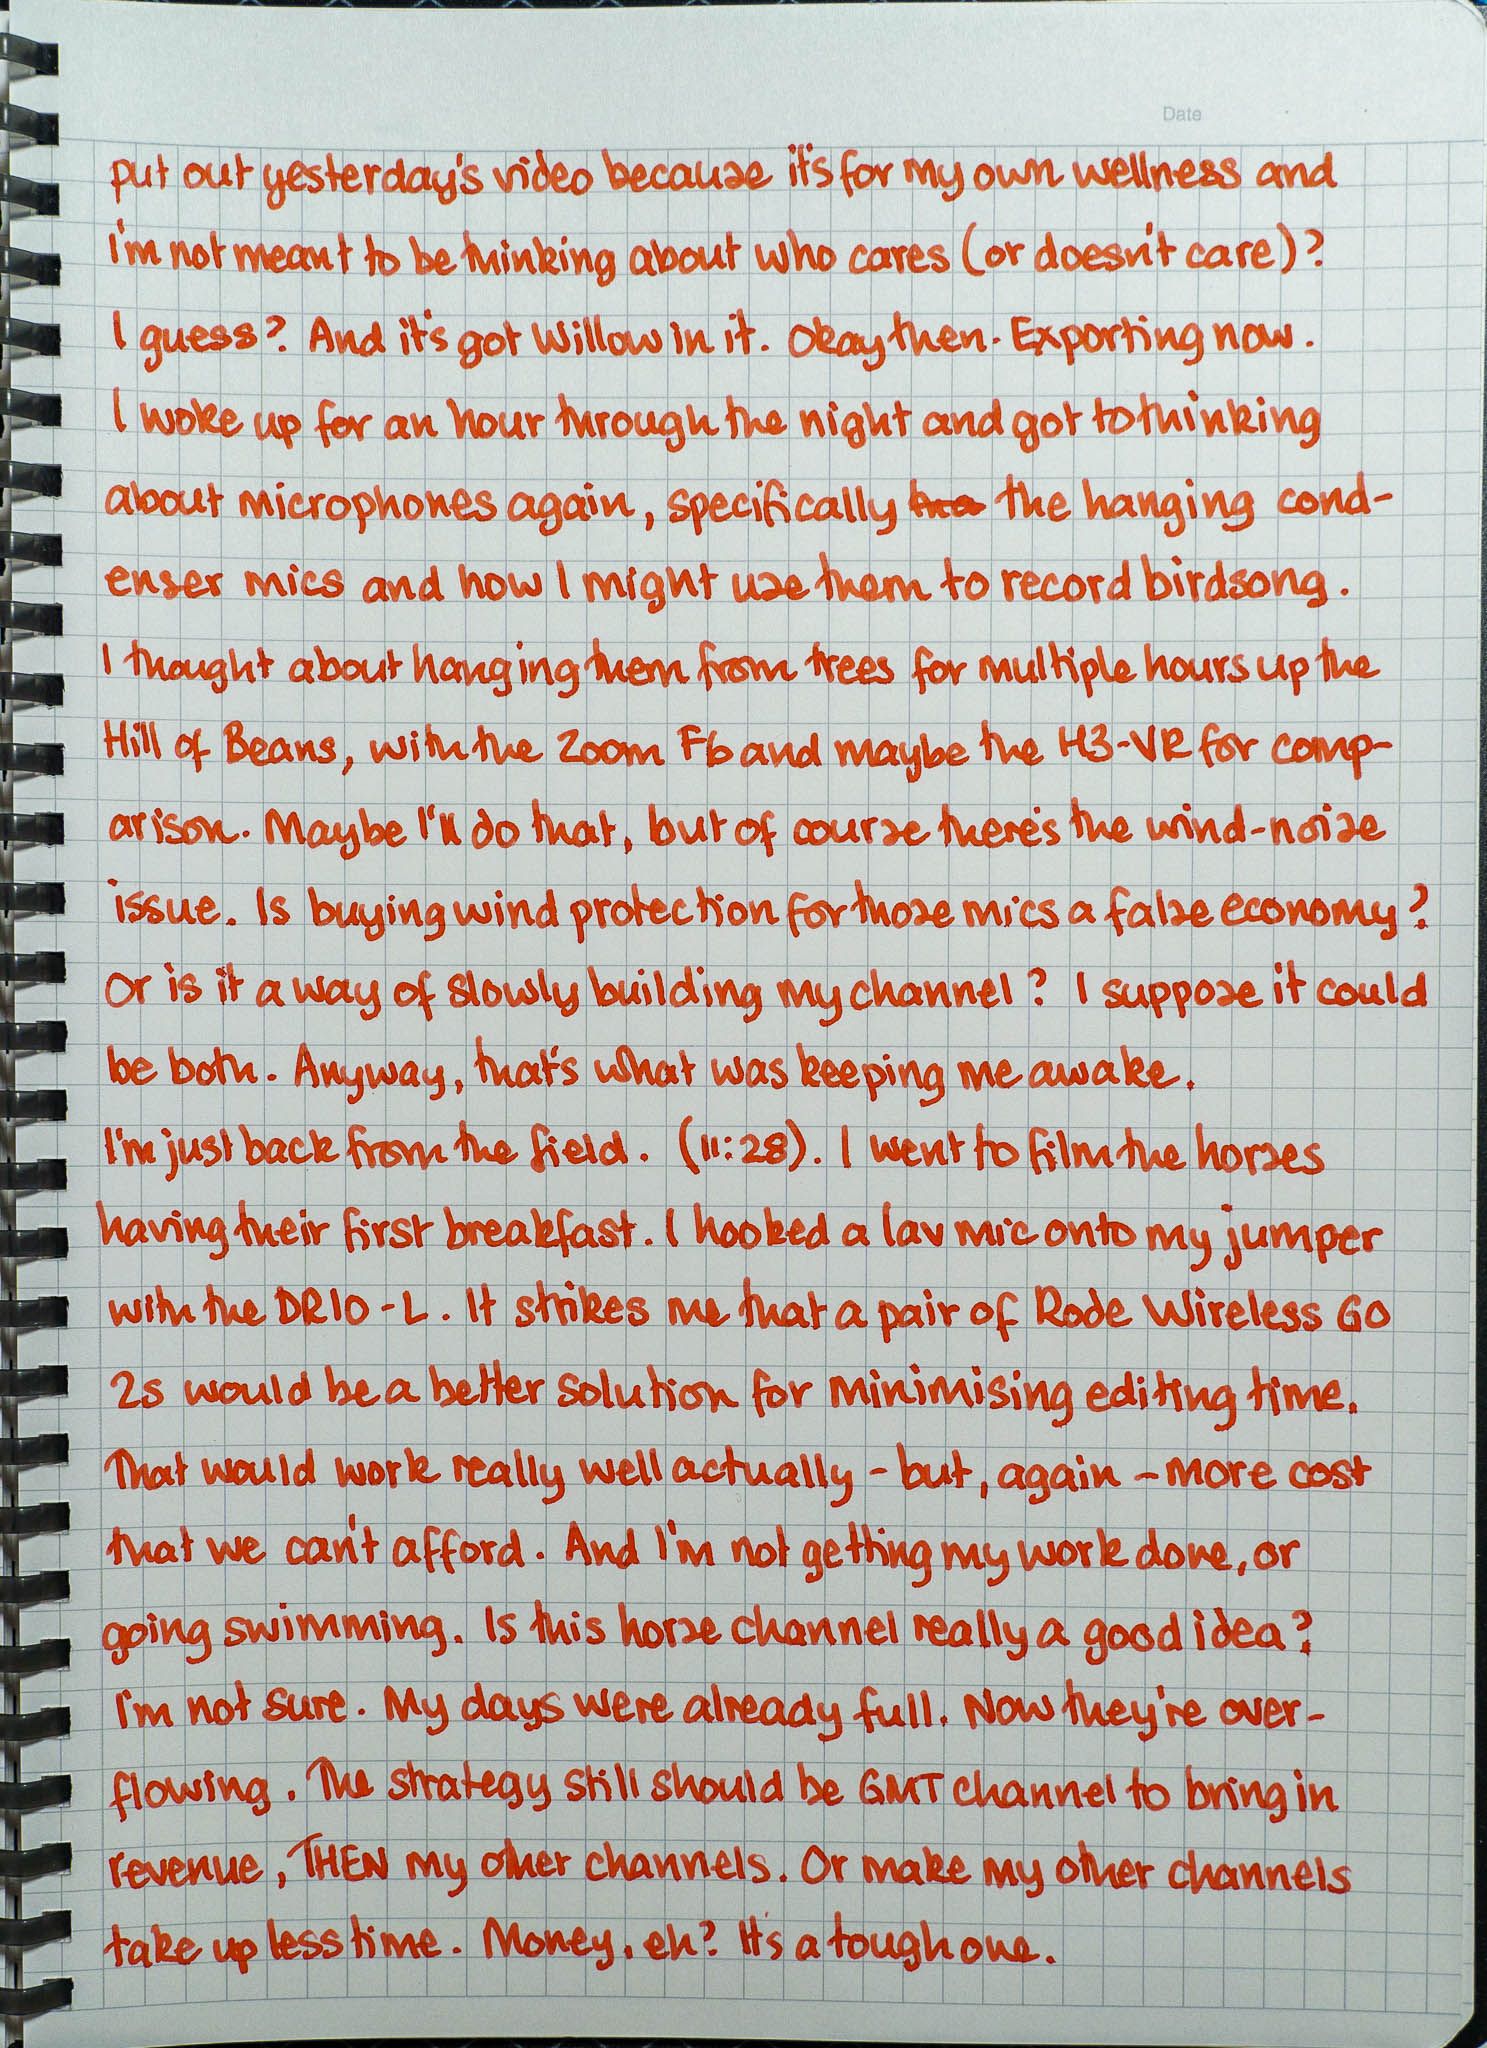 Date
put out yesterday's video because it's for my own wellness and
I'm not meant to be thinking about who cares (or doesn't care)?
I guess? And it's got Willow in it. Okay then. Exporting now.
I woke up for an hour through the night and got to thinking
about microphones again, specifically the hanging cond-
enser mics and how I might use them to record birdsong.
I thought about hanging them from trees for multiple hours up the
Hill of Beans, with the Zoom F6 and maybe the H3-VR for comp-
arison. Maybe I'll do that, but of course there's the wind-noise
issue. Is buying wind protection for those mics a false economy?
Or is it a way of slowly building my channel? I suppose it could
be both. Anyway, that's what was keeping me awake.
I'm just back from the field. (11:28). I went to film the horses
having their first breakfast. I hooked a lav mic onto my jumper
with the DR10-L. It strikes me that a pair of Rode Wireless GO
2s would be a better solution for minimising editing time.
That would work really well actually - but, again - more cost
that we can't afford. And I'm not getting my work done, or
going swimming. Is this horse channel really a good idea?
I'm not sure. My days were already full. Now they're over-
flowing. The strategy still should be GMT channel to bring in
revenue, THEN my other channels. Or make my other channels
take up less time. Money, eh? It's a tough one.